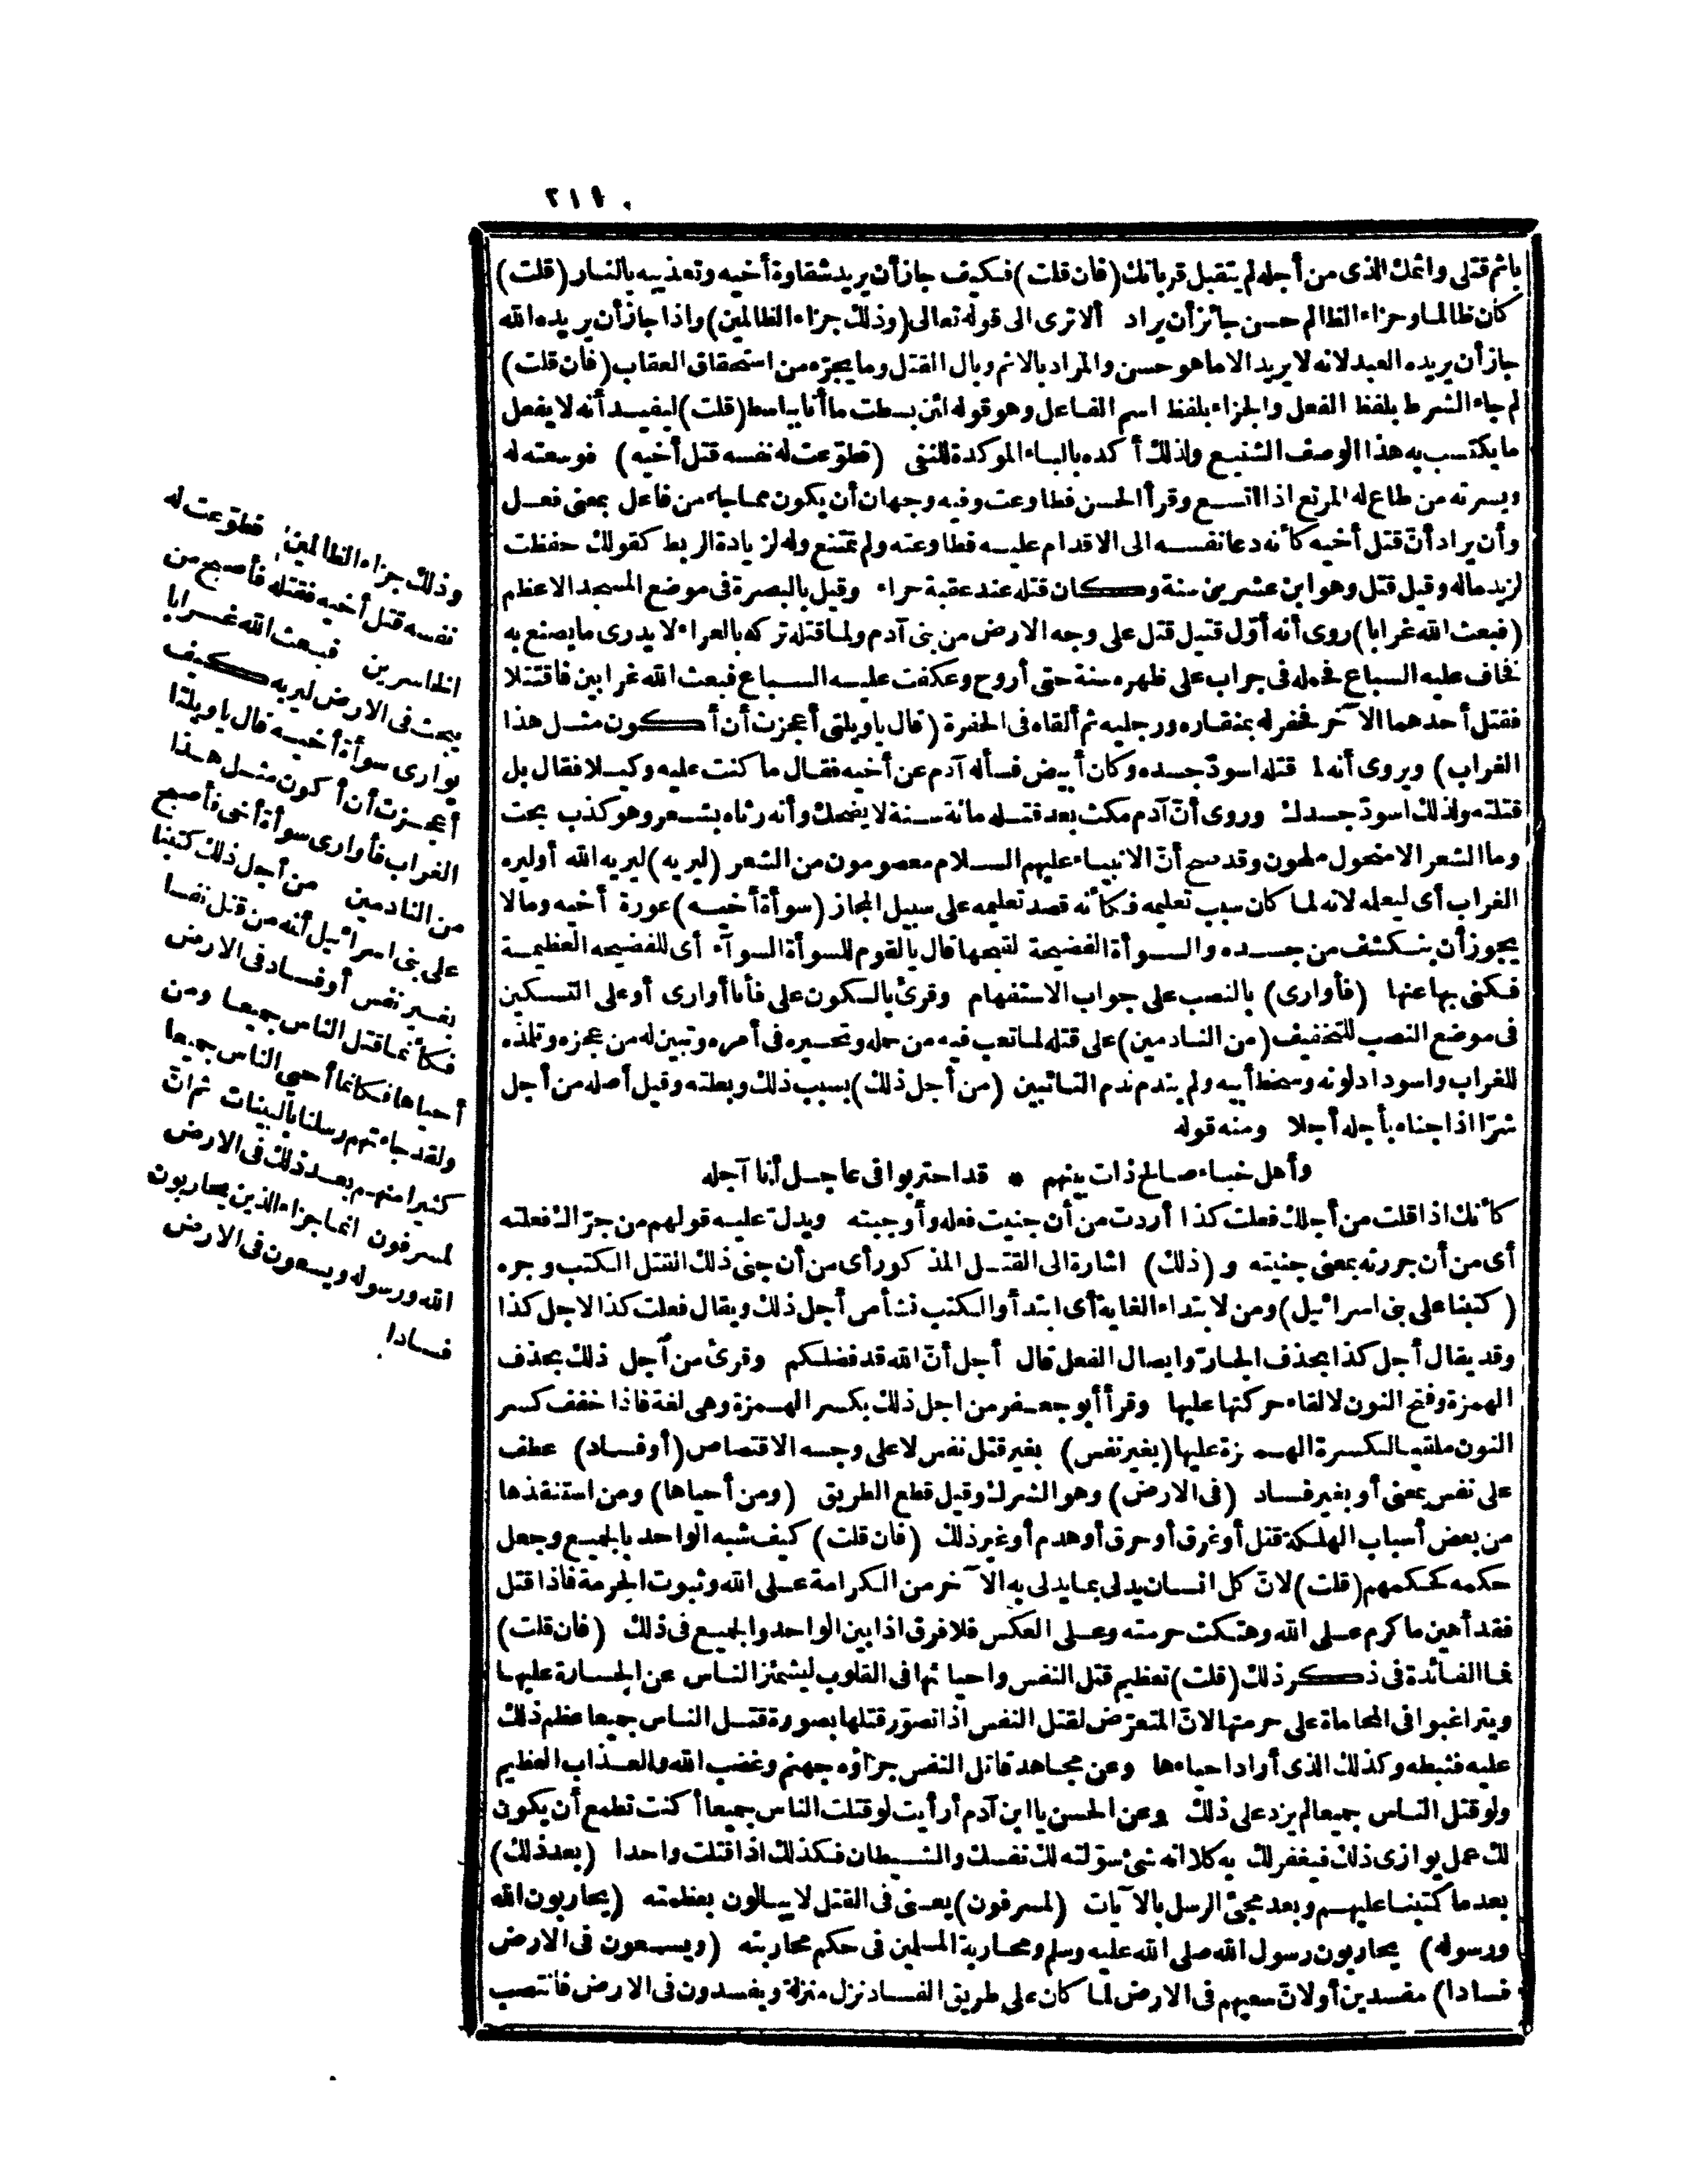 باثم قتلى واثمك الذى من أجله لم يتقبل قربانك (فان قلت) فكيف جاز أن يريد شقاوة أخيه وتعذيبه بالنار (قلت)
كان ظالما وجزاء الظالم حسن جائز أن يراد ألا ترى الى قوله تعالى (وذلك جزاء الظالمين) واذا جاز أن يريده الله
جاز أن يريده العبد لانه لا يريد الا ما هو حسن والمراد بالاثم وبال القتل وما يجرّه من استحقاق العقاب (فان قلت)
لم جاء الشرط بلفظ الفعل والجزاء بلفظ اسم الفاعل وهو قوله لئن بسطت ما أنا بباسط (قلت) ليفيد أنه لا يفعل
ما يكتسب به هذا الوصف الشنيع ولذلك أكده بالباء الموكدة للنفى (فطوّعت له نفسه قتل أخيه) فوسعته له
ويسرته من طاع له المرتع اذا اتسع وقرأ الحسن فطاوعت وفيه وجهان أن يكون مما جاء من فاعل بمعنى فعل
وأن يراد أنّ قتل أخيه كأنه دعا نفسه الى الاقدام عليه فطاوعته ولم تمتنع وله لزيادة الربط كقولك حفظت
لزيد ماله وقيل قتل وهو ابن عشرين سنة وكان قتله عند عقبة حراء وقيل بالبصرة فى موضع المسجد الاعظم
(فبعث الله غرابا) روى أنه أوّل قتيل قتل على وجه الارض من بنى آدم ولما قتله تركه بالعراء لا يدرى ما يصنع به
فخاف عليه السباع فحمله فى جراب على ظهره سنة حتى أروح وعكفت عليه السباع فبعث الله غرابين فاقتتلا
فقتل أحدهما الآخر فحفر له بمنقاره ورجليه ثم ألقاه فى الحفرة (قال ياويلتى أعجزت أن أكون مثل هذا
الغراب) ويروى أنه لما قتله اسودّ جسده وكان أبيض فسأله آدم عن أخيه فقال ما كنت عليه وكيلا فقال بل
قتلته ولذلك اسودّ جسدك وروى أنّ آدم مكث بعد قتله مائة سنة لا يضحك وأنه رثاه بشعر وهو كذب بحت
وما الشعر الا منحول ملحون وقد صح أنّ الانبياء عليهم السلام معصومون من الشعر (ليريه) ليريه الله أو ليره
الغراب أى ليعلمه لانه لما كان سبب تعليمه فكأنه قصد تعليمه على سبيل المجاز (سوأة أخيه) عورة أخيه وما لا
يجوز أن ينكشف من جسده والسوأة الفضيحة لقبحها قال يالقوم للسوأة السوآء أى للفضيحه العظيمة
فكنى بها عنها (فأوارى) بالنصب على جواب الاستفهام وقرئ بالسكون على فأنا أوارى أو على التسكين
فى موضع النصب للتخفيف (من النادمين) على قتله لما تعب فيه من حمله وتحسيره فى أمره وتبين له من عجزه وتلمذه
للغراب واسوداد لونه وسخط أبيه ولم يندم ندم التائبين (من أجل ذلك) بسبب ذلك وبعلته وقيل أصله من أجل
شرّا اذا جناه يأجله أجلا ومنه قوله
وأهل خباء صالح ذات بينهم * قد احتربوا فى عاجل أنا آجله
كأنك اذا قلت من أجلك فعلت كذا أردت من أن جنيت فعله وأوجبته ويدلّ عليه قولهم من جرّاك فعلته
أى من أن جررته بمعنى جنيته و (ذلك) اشارة الى القتل المذكور أى من أن جنى ذلك القتل الكتب وجره
(كتبنا على بنى اسرائيل) ومن لابتداء الغاية أى ابتدأ والكتب نشأ من أجل ذلك ويقال فعلت كذا لاجل كذا
وقد يقال أجل كذا بحذف الجارّ وايصال الفعل قال أجل أنّ الله قد فضلكم وقرئ من اجل ذلك بحذف
الهمزة وفتح النون لالقاء حركتها عليها وقرأ أبو جعفر من اجل ذلك بكسر الهمزة وهى لغة فاذا خفف كسر
النون ملقيا لكسرة الهمزة عليها (بغير نفس) بغير قتل نفس لا على وجه الاقتصاص (أو فساد) عطف
على نفس بمعنى أو بغير فساد (فى الارض) وهو الشرك وقيل قطع الطريق (ومن أحياها) ومن استنقذها
من بعض أسباب الهلكة قتل أو غرق أو حرق أو هدم أو غير ذلك (فان قلت) كيف شبه الواحد بالجميع وجعل
حكمه كحكمهم (قلت) لانّ كل انسان يدلى بما يدلى به الآخر من الكرامة على الله وثبوت الحرمة فاذا قتل
فقد أهين ما كرم على الله وهتكت حرمته وعلى العكس فلا فرق اذا بين الواحد والجميع فى ذلك (فان قلت)
فما الفائدة فى ذكر ذلك (قلت) تعظيم قتل النفس واحيائها فى القلوب ليشمئز الناس عن الجسارة عليها
ويتراغبوا فى المحاماة على حرمتها لانّ المتعرّض لقتل النفس اذا تصوّر قتلها بصورة قتل الناس جميعا عظم ذلك
عليه فثبطه وكذلك الذى أراد احياءها وعن مجاهد قاتل النفس جزاؤه جهنم وغضب الله والعذاب العظيم
ولو قتل الناس جميعا لم يزد على ذلك وعن الحسن يا ابن آدم أرأيت لو قتلت الناس جميعا أكنت تطمع أن يكون
لك عمل يوازى ذلك فيغفر لك به كلا انه شئ سوّلته لك نفسك والشيطان فكذلك اذا قتلت واحدا (بعد ذلك)
بعد ما كتبنا عليهم وبعد مجئ الرسل بالآيات (لمسرفون) يعنى فى القتل لا يبالون بعظمته (يحاربون الله
ورسوله) يحاربون رسول الله صلى الله عليه وسلم ومحاربة المسلمين فى حكم محاربته (ويسعون فى الارض
فسادا) مفسدين أو لانّ سعيهم فى الارض لما كان على طريق الفساد نزل منزلة ويفسدون فى الارض فانتصب
وذلك جزاء الظالمين فطوّعت له
نفسه قتل أخيه فقتله فأصبح من
الخاسرين فبعث الله غرابا
يبحث فى الارض ليريه كيف
يوارى سوأة أخيه قال ياويلتا
أعجزت أن أكون مثل هذا
الغراب فأوارى سوأة أخى فأصبح
من النادمين من أجل ذلك كتبنا
على بنى اسرائيل أنه من قتل نفسا
بغير نفس أو فساد فى الارض
فكأنما قتل الناس جميعا ومن
أحياها فكانما أحيى الناس جميعا
ولقد جاءتهم رسلنا بالبينات ثم انّ
كثيرا منهم بعد ذلك فى الارض
لمسرفون انما جزاء الذين يحاربون
الله ورسوله ويسعون فى الارض
فسادا